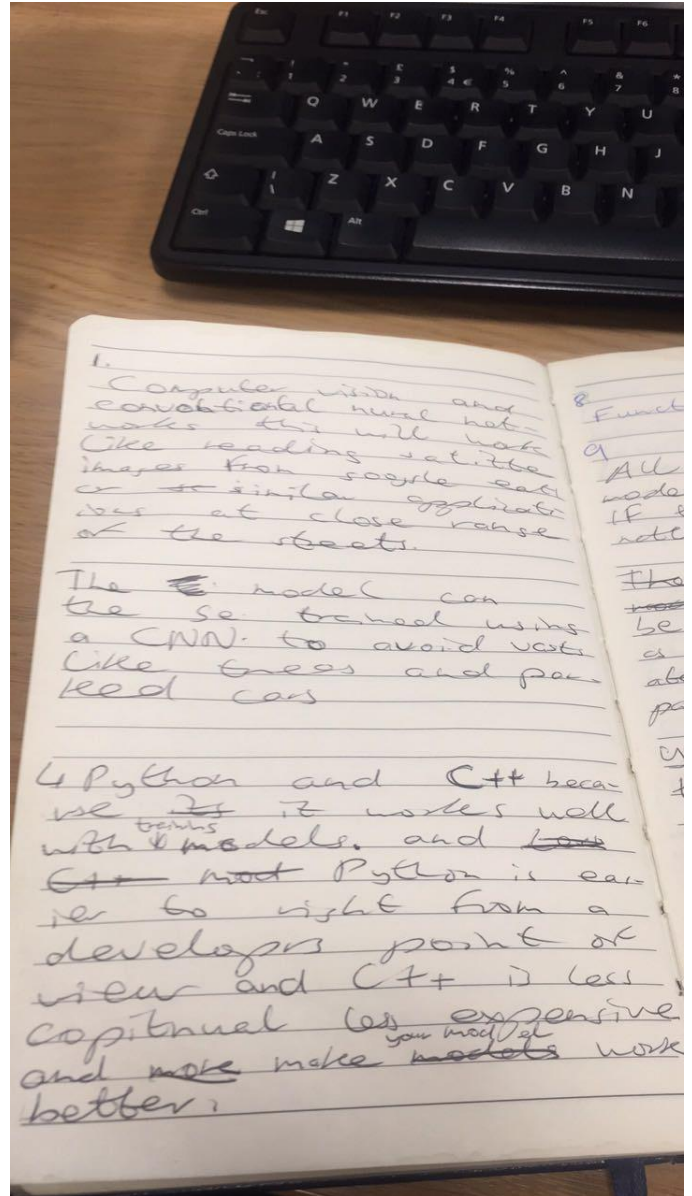 Esc F1 F2 F3 F4 F5 F6
! 1 " 2 £ 3 $ 4 € % 5 ^ 6 & 7 * 8
Q W E R T Y U
Caps Lock A S D F G H J
\ Z X C V B N
Ctrl Alt
1.
Computer vision and
nural net-
works this will work
like reading
images from
or similar applicati
ions at close range
of the streets.
The model can
the se trained using
a CNN. to avoid
like trees and par-
ked cars
4 Python and C++ beca-
use its it works well
with training models. and
C++ mod Python is eas-
ier to right from a
developrs point of
view and C++ is less
less expensive
and more make your model models work
better.
8
Funct
9
All
mode
IF
note
The
be
as
ato
pa